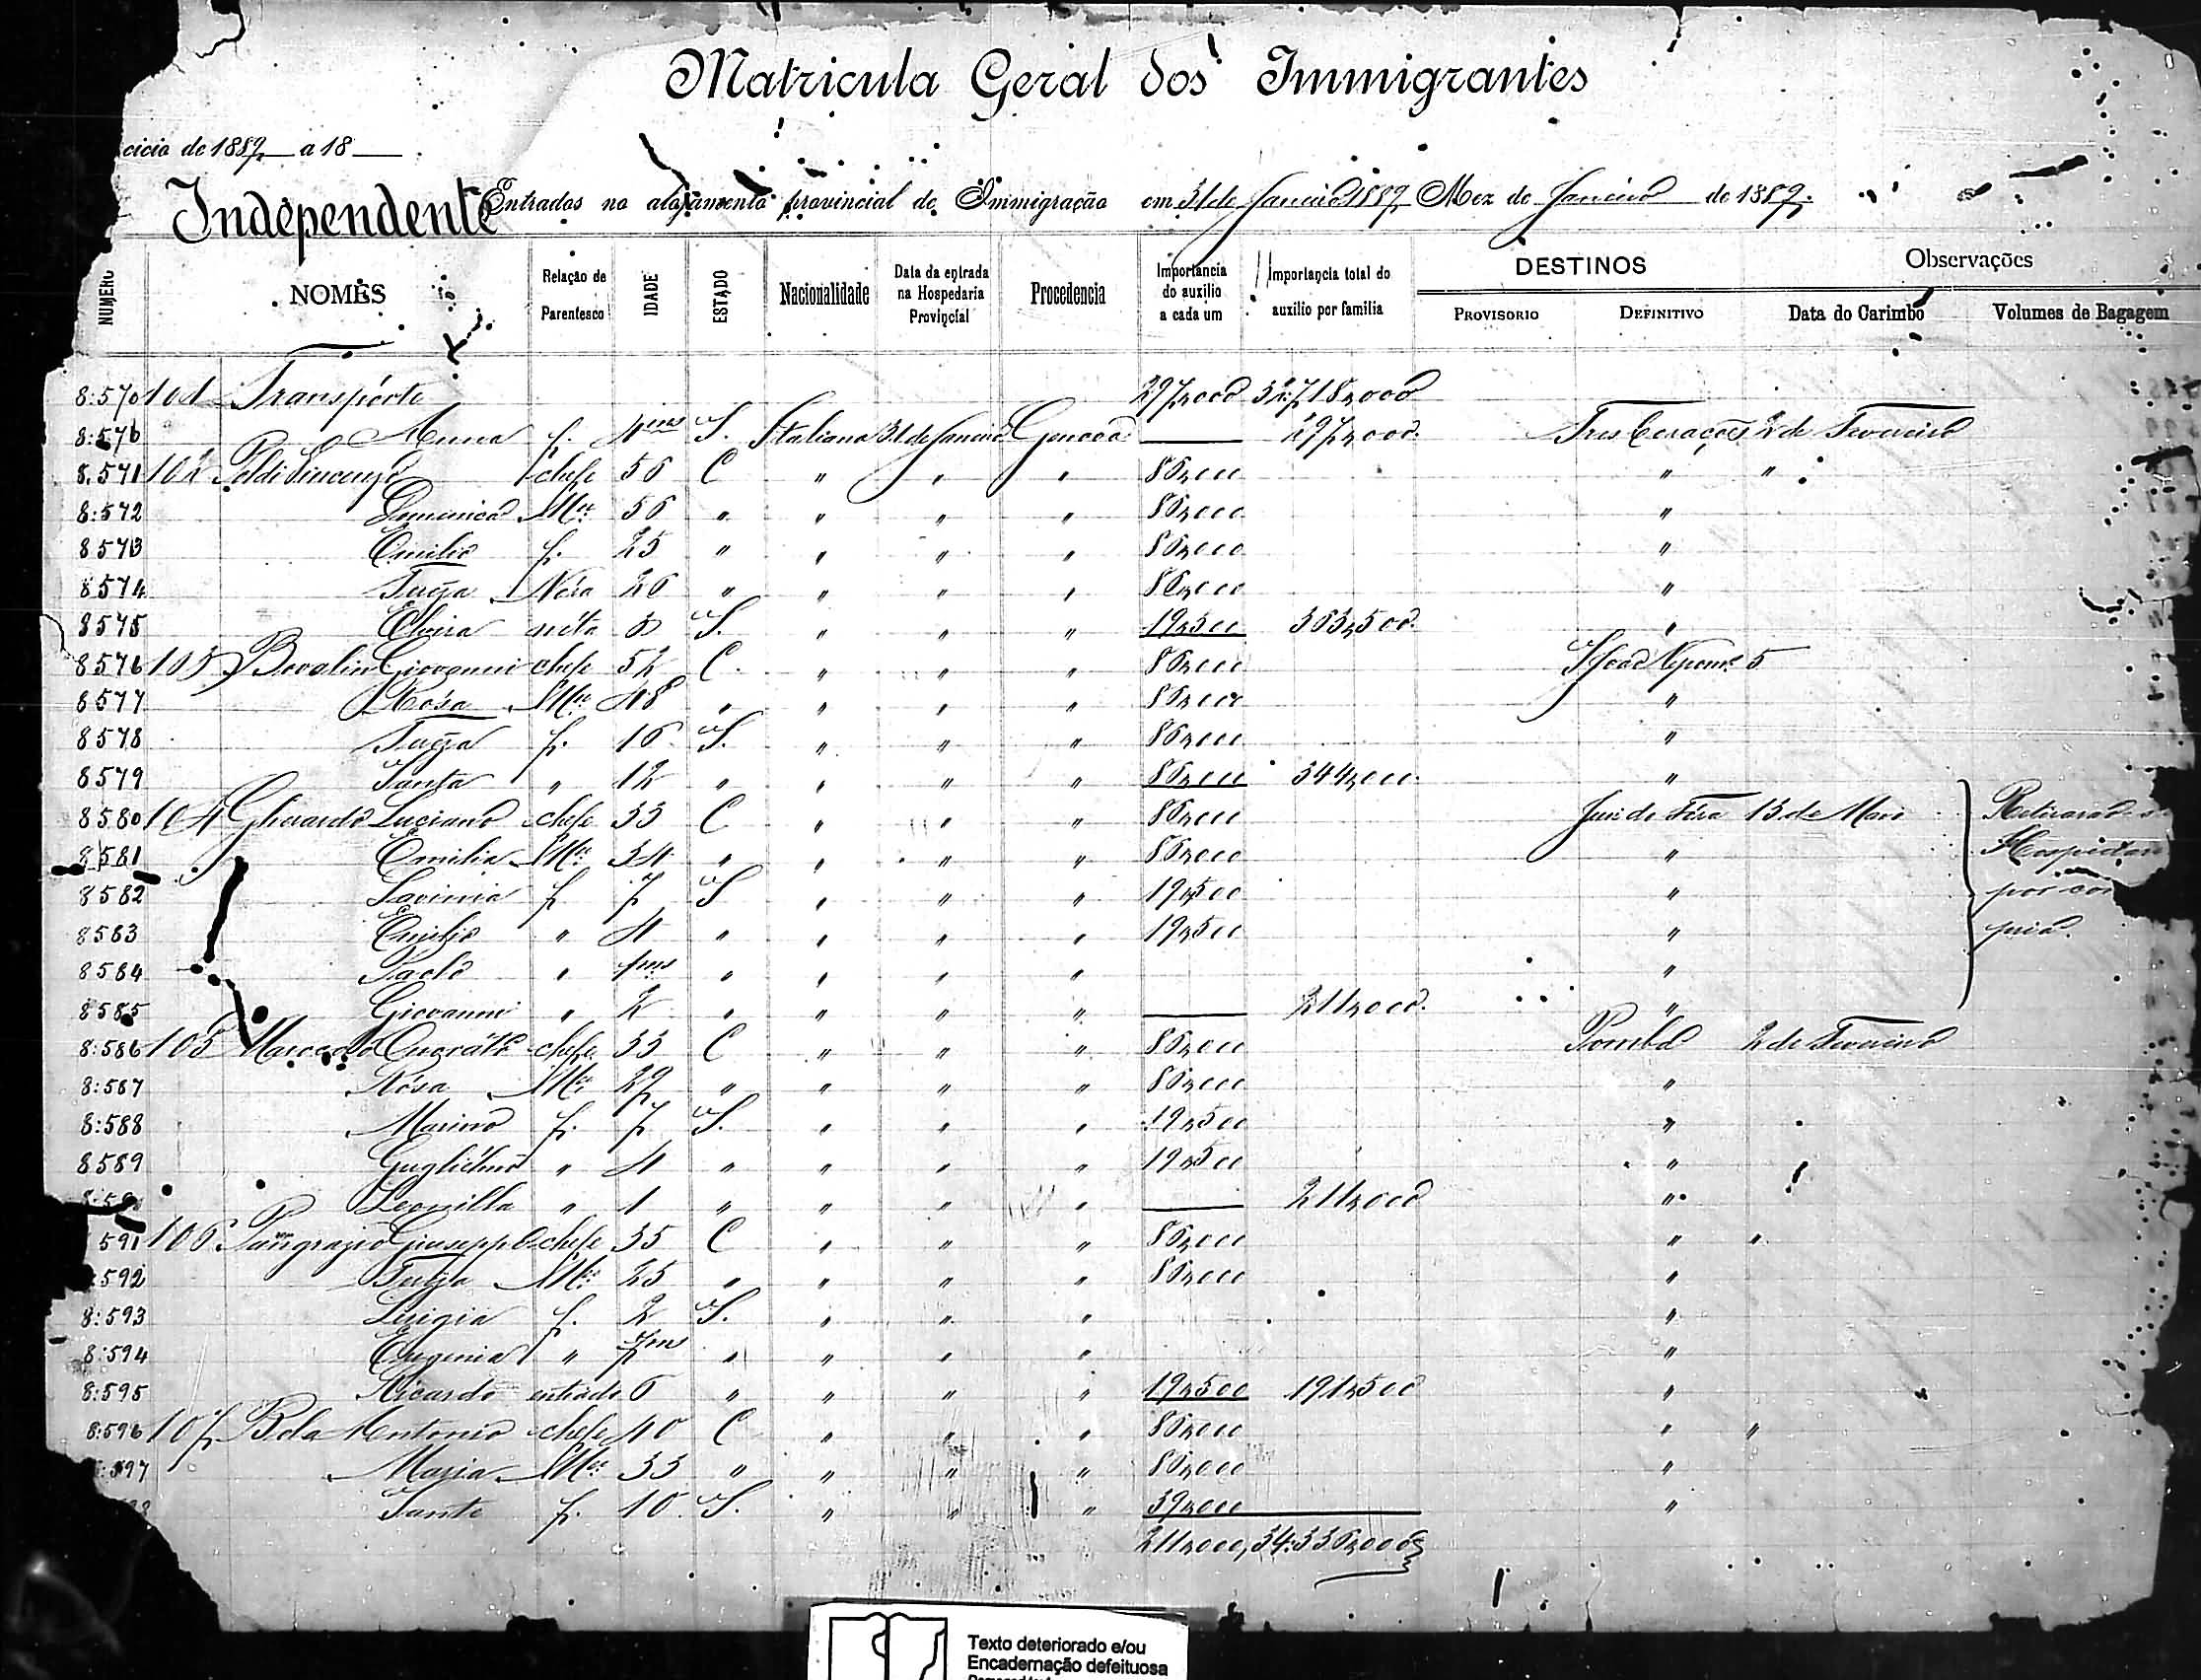 Matricula Geral dos Immigrantes
cicio de 1889 a 18
Independente Entradas no alojamento provincial de Immigração em 31 de Janeiro 1889 Mez de Janeiro de 1889.
NUMERO NOMES Relação de Parentesco IDADE ESTADO Nacionalidade Data da entrada na Hospedaria Provincial Procedencia Importancia do auxilio a cada um Importancia total do auxilio por familia DESTINOS PROVISORIO DEFINITIVO Data do Carimbo Observações Volumes de Bagagem
8:570 101 Transporte 297,000 32:718,000
Anna f. S. Italiana 31 de Janeiro Genova 297,000 Tres Corações 2 de Fevereiro
8:571 102 Poldi Vincenzo chefe 56 C " " " 86,000 " "
8:572 Mer 56 " " " " 86,000 "
8573 Emilio f. 25 " " " " 86,000 "
8574 Nóra 26 " " " " 86,000 "
8575 Elvira néta 3 S. " " " 19,500 363,500 "
8576 103 Giovanni chefe 52 C. " " " 86,000 5
8577 Rosa Mer 48 " " " " 86,000 "
8578 f. 16 S. " " " 86,000 "
8579 Santa " 12 " " " " 86,000 344,000 "
8580 104 Gherardo Luciano chefe 33 C " " " 86,000 Juiz de Fóra 13 de
8581 Emilia Mer 34 " " " " 86,000 "
8582 f 7 S " " " 19,500 " por
8583 Emilio " 4 " " " " 19,500 "
8584 Paolo " " " " " "
8585 Giovanni " 2 " " " " 211,000 "
8:586 105 chefe 33 C " " " 86,000 Pomba 2 de Fevereiro
8:587 Rosa Mer 29 " " " " 86,000 "
8:588 Marino f. 7 S. " " " 19,500 "
8589 Guglielmo " 4 " " " " 19,500 "
Leonilla " 1 " " " " 211,000 "
591 106 Pangrazio Giuseppe chefe 35 C " " " 86,000 " "
592 Mer 25 " " " " 86,000 "
8:593 Luigia f. 2 S. " " " "
8:594 Eugenia " 7ms " " " " "
8:595 Ricardo entiado 6 " " " " 19,500 191,500 "
8:596 107 Antonio chefe 40 C " " " 86,000 " "
597 Maria Mer 33 " " " " 86,000 "
Sante f. 10 S. " " " 39,000 "
211,000, 34:336,000
Texto deteriorado e/ou
Encadernação defeituosa